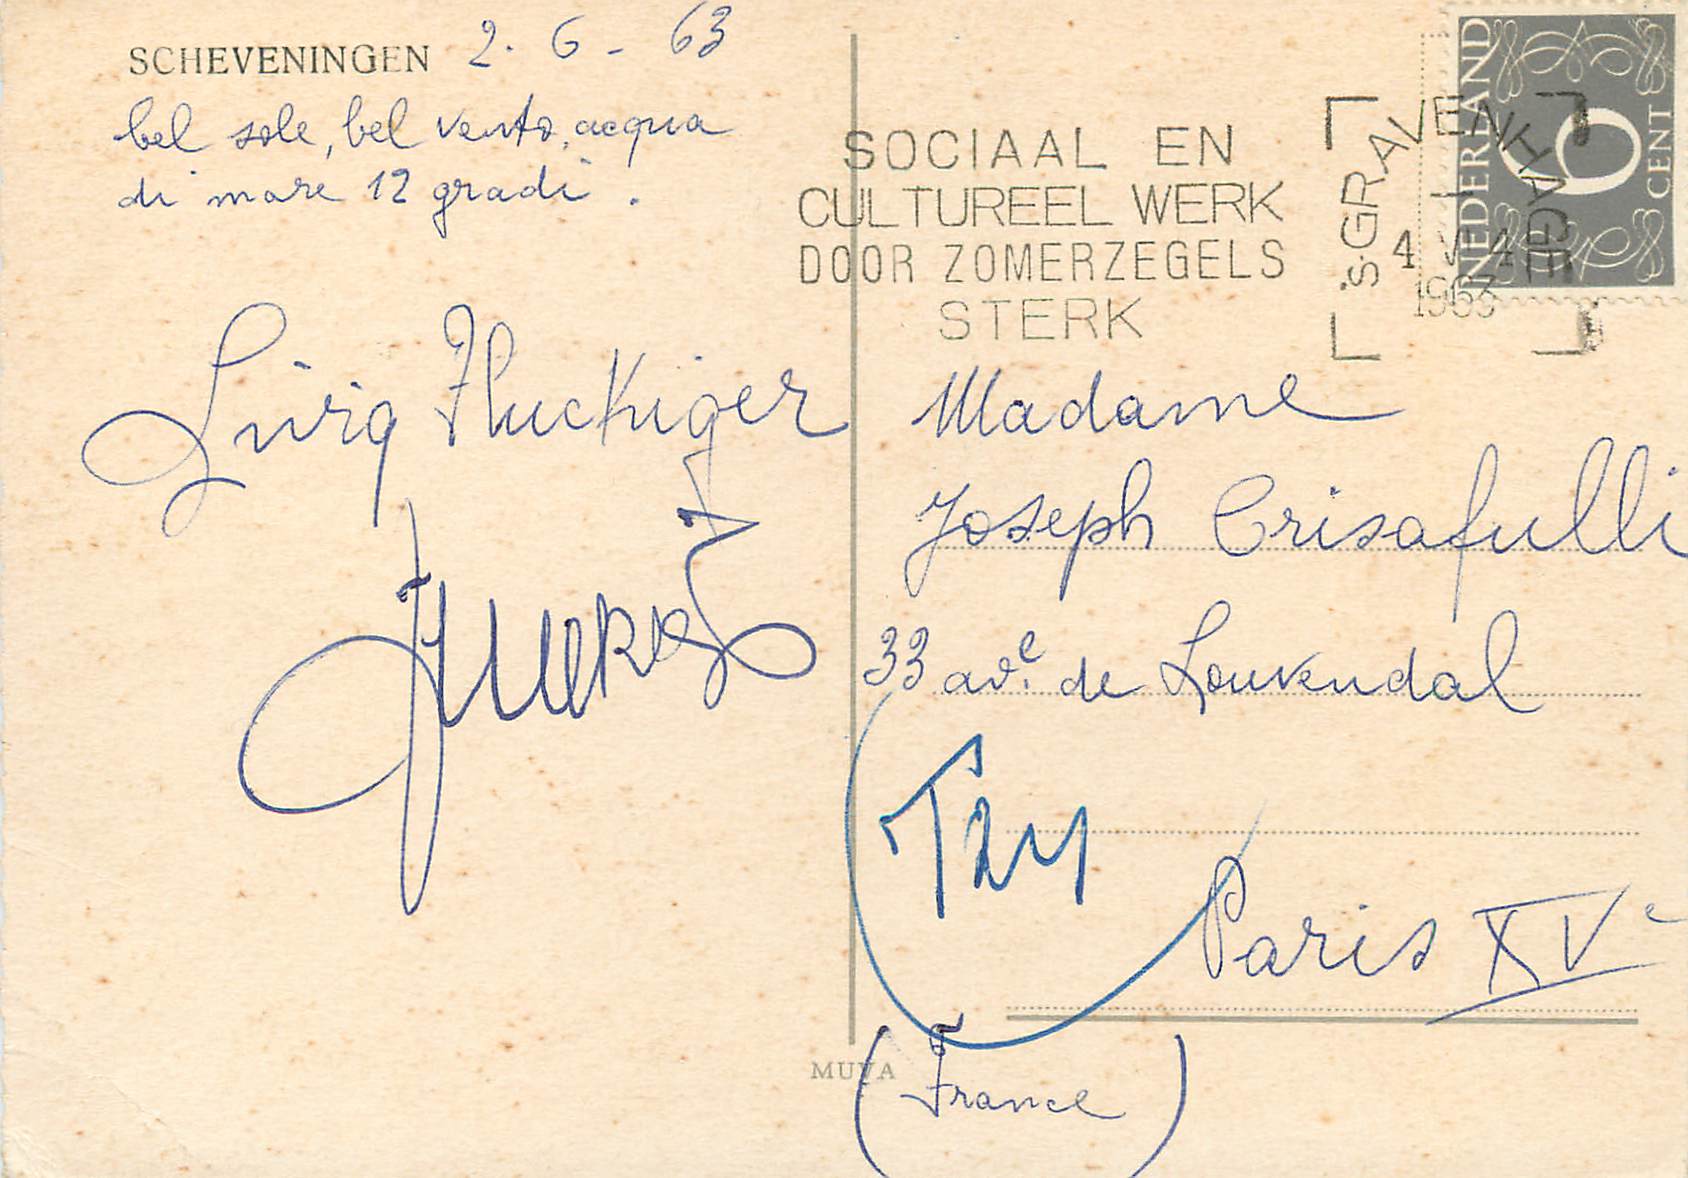 SCHEVENINGEN 2. 6 - 63
bel sole, bel vento, acqua
di mare 12 gradi.
Jürg Fluckiger
SOCIAAL EN
CULTUREEL WERK
DOOR ZOMERZEGELS
STERK
's-GRAVENHAGE
4 V
1963
NEDERLAND
6
CENT
Madame
Joseph Crisafulli
33 ave. de Louvendal
Paris XVe
(France)
MUVA